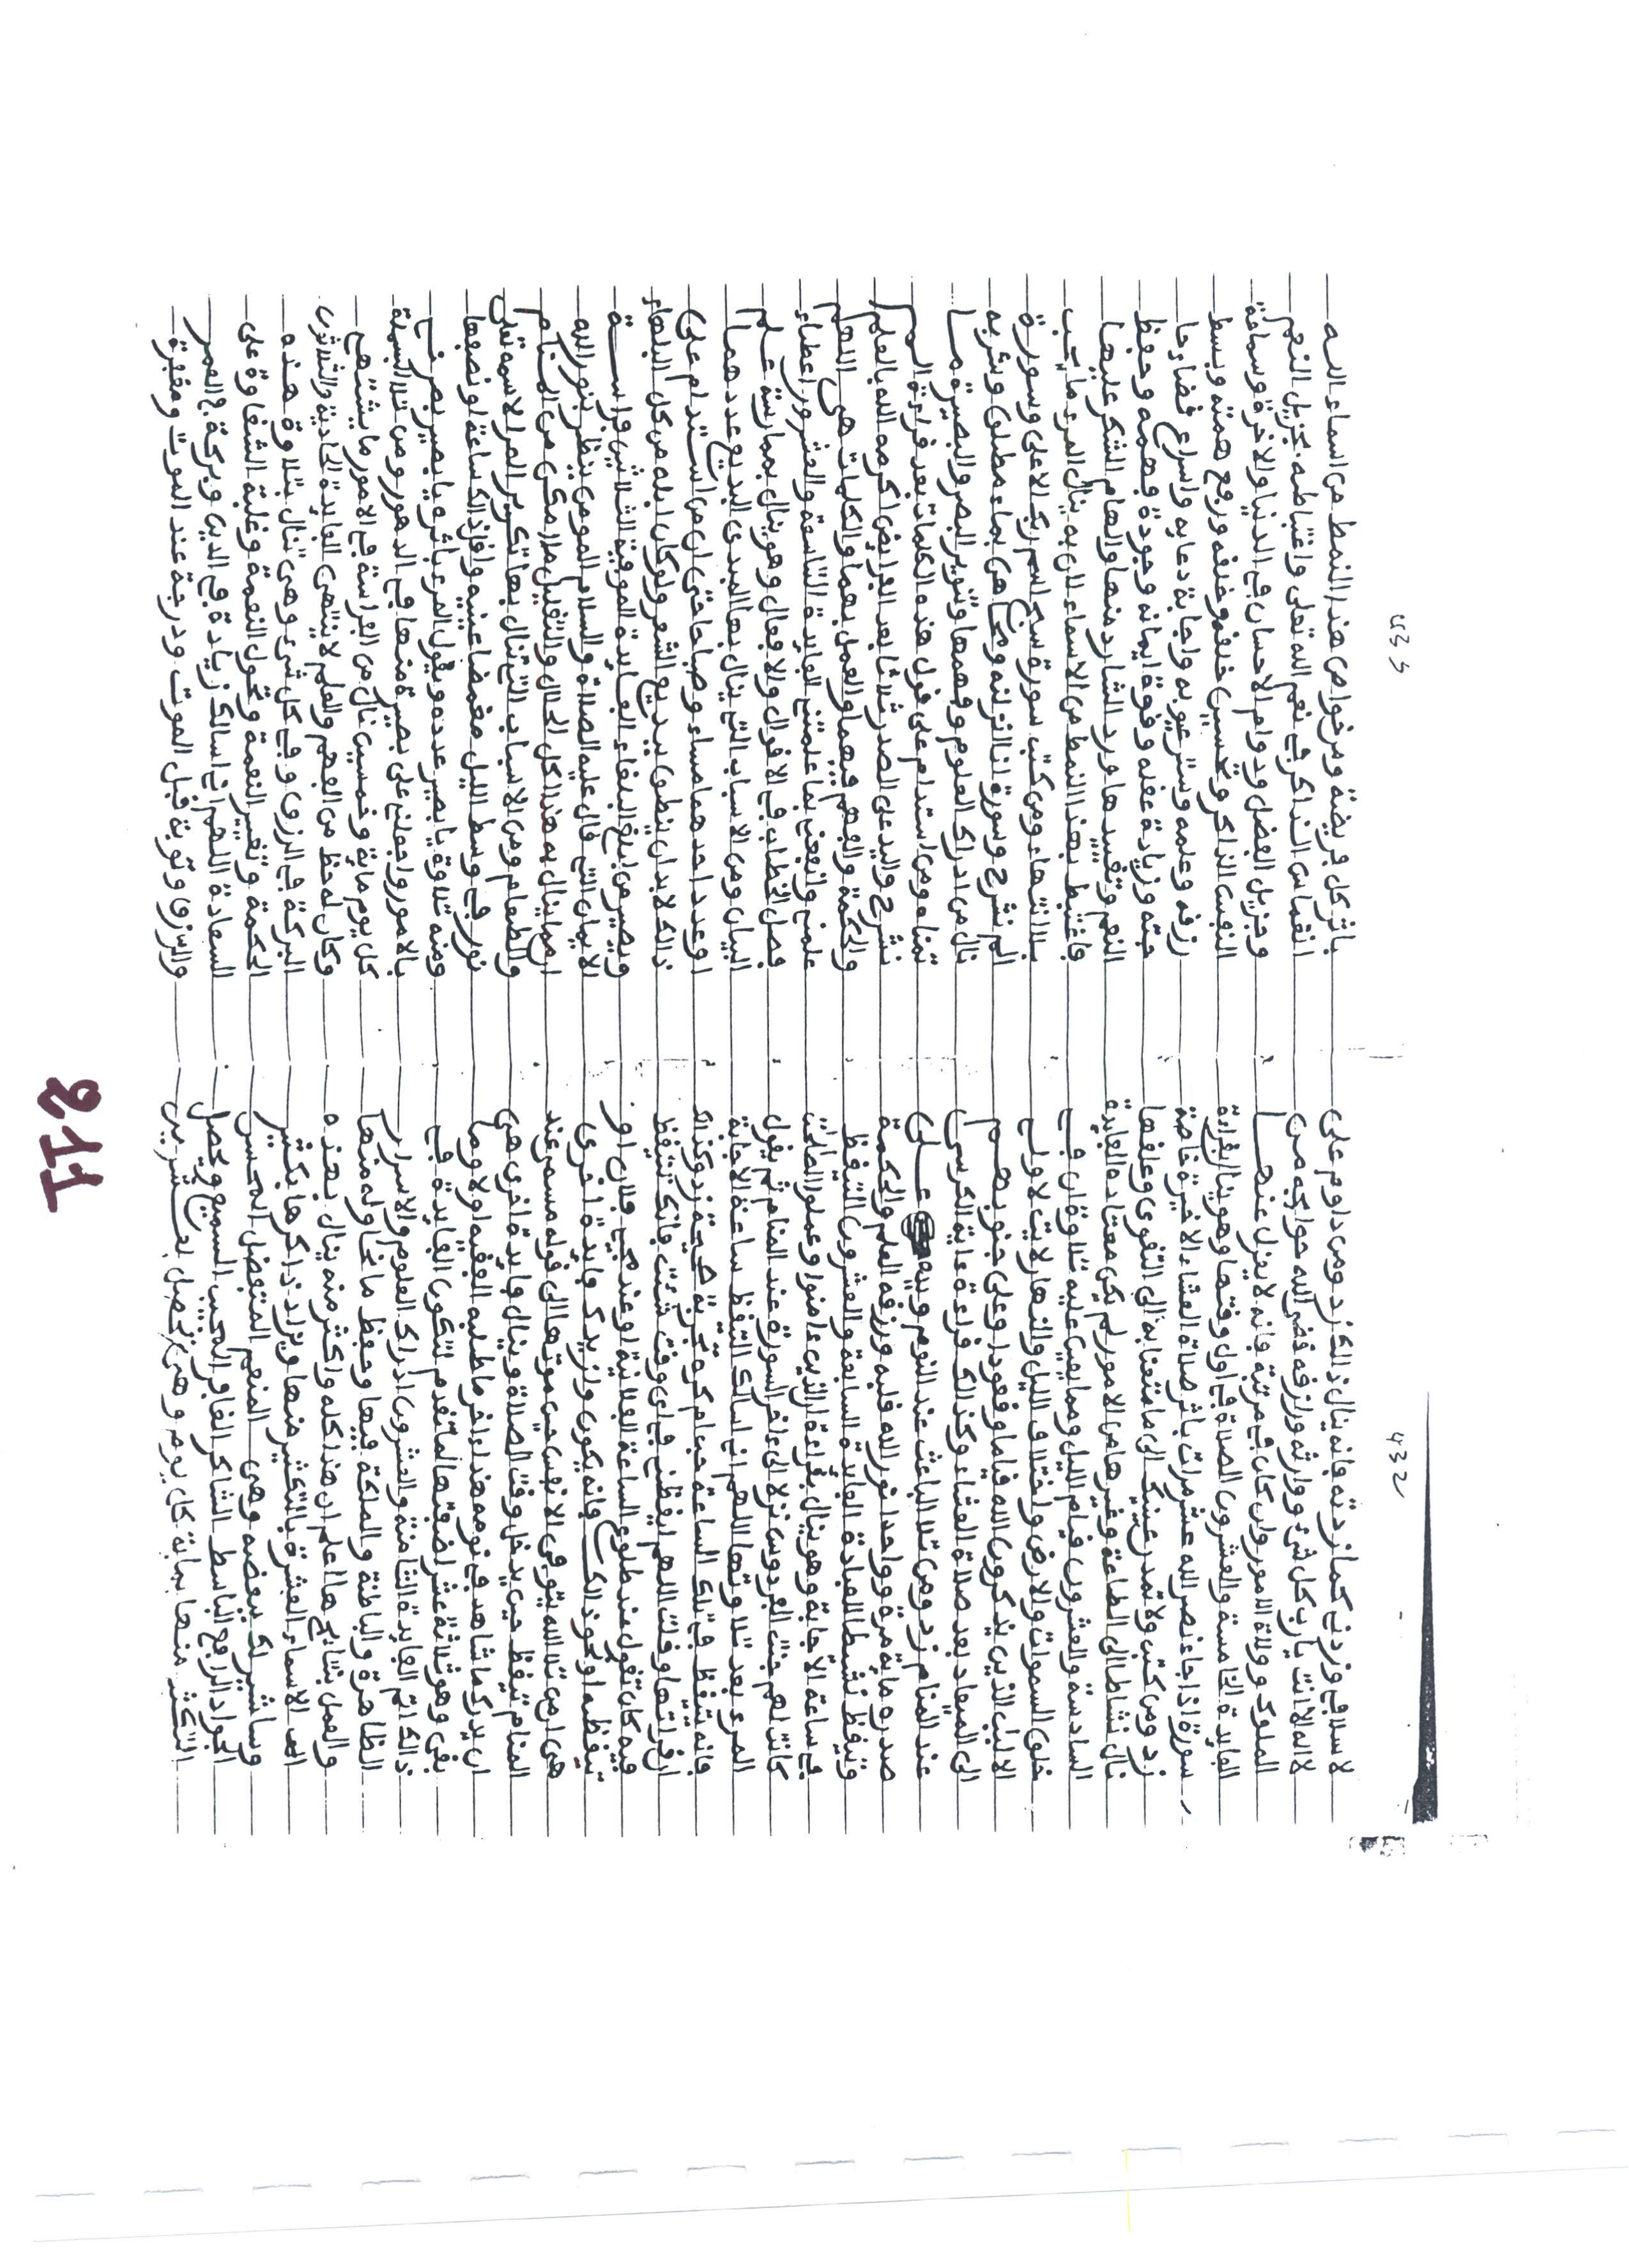 432
لاسلافي وزدني كما زدته فإنه ينال ذالك زد ومن داوم على
لا اله الا انت يارب كل شيء ووارثه ورازقه قضى الله حوائجه من
الملوك وولاة الامور وان كان في مرتبة فانه لا يعزل عنها
الفايدة الخامسة والعشرون الصلاة في اول وقتها وهو ينا القراءة
سورة اذا جاء نصر الله عشر مرات باثر صلاة العشاء الاخيرة خاصة
زد ومن كتب ولا تمدن عينيك الى ما متعنا به الى التقوى وعلقها
نال نشاطا الى الطاعة وغيرها من الامور لم يكن معتاده الفايدة
السادسة والعشرون قيام الليل ومما يعين عليه تلاوة ان في
خلق السموات والارض واختلاف الليل والنهار لايت لاولي
الالبب الذين يذكرون الله قياما وقعودا وعلى جنوبهم
الى الميعاد بعد صلاة العشاء وكذالك قراءة ءاية الكرسي
عند المنام زد ومن تلا الباعث عند النوم ويده على
صدره ماية مرة وواحدا نور الله قلبه ورزقه العلم والحكمة
وتيقظ نشطا للعبادة الفايدة السابعة والعشرون التيقظ
في ساعة الاجابة وهو ينال بقراءة ان الذين ءامنوا وعملوا الصلحت
كانت لهم جنت الفردوس نزلا الى ءاخر السورة عند المنام ثم يقول
المرء بعد تلاوتها اللهم اني اسالك التيقظ ساعة الاجابة
فانه يتيقظ في تلك الساعة
ان قراتها وقلت اللهم ايقظني في اي وقت شئت فانك تتيقظ
فيه كان تقول عند طلوع الساعة الفلانية او عند مجيء فلان او
تيقظه او نحو ذالك فانه يكون وازيدك فايدة اخرى
هي ان من تلا الله يتوفى الانفس حين موتها الى قوله مسمى عند
المنام تيقظ حين يدخل وقت الصلاة وينال فايدة اخرى هي
ان يدرك ما شاهد في نومه
بقي وهو ثلاثة عشر اضفتها لما تقدم لتكون الفايدة في
ذالك اتم الفايدة الثامنة والعشرون ادراك العلوم والاسرار
الظاهرة والباطنة والملكة فيها وحفظ ما تحاوله منها
والعمل بنتايجها اعلم ان هذا كله واكثر منه ينال بهذه
الاسماء العشرة بالتكثير منها ويزاد ذاكرها بكثير
وساشير لك ببعضه وهي المنعم المتفضل المحسن
الجواد الرافع الباسط الشاكر الغافر المجيب السميع ويحصل
التكثير منها بماية كل يوم وهي تحصل بعشرين
433
باثر كل فريضة ومن خواص هذا النمط من اسماء الله
انغماس الذاكر في نعم الله تعلى واغتباطه بجزيل النعم
وجزيل الفضل ودوام الاحسان في الدنيا والاخرة وسماحة
النفس الذاكر وتحسين خلقه وخلقه ورفع همته وبسط
رزقه وعلمه وستر عيوبه واجابة دعايه واسراع قضاء حا
جته وزيادة عقله وقوة ايمانه وجودة فهمه وحفظ
النعم وتقييدها ورد الشارد منها والهام الشكر عليها
فاغتبط بهذا النمط من الاسماء لان به ينال المرء ما يحب
بلا انتهاء ومن كتب سورة سبح اسم ربك الاعلى وسورة
الم نشرح وسورة انا انزلنه ومحاهن بماء مطلق وشربه
نال من ادراك العلوم وفهمها وتنوير البصر والبصيرة ما
تمناه ومن استدام على قول هذه الكلمات بعد قراءة الم
نشرح واليد على الصدر ثلاثا بعد الفرايض اكرمه الله بالعلم
والحكمة والفهم فيهما والعمل بهما والكلمات هي اللهم
علمني وانفعني بما علمتني الفايدة التاسعة والعشرون اعطاء
فصل الخطاب في الاقوال والافعال وهو ينال بممارسة علم
البيان ومن الاسباب التي ينال بها المبدئ البديع عددهما
او عدد احدهما مساء وصباحا حتى ان من استدام على
ذالك لابد ان ينطق ببديع الشعر ولو كان ابله من كل البلهاء
ويصير من ابلغ البلغاء الفايدة الموفية الثلاثين فراسة
الايمان التي قال عليه الصلاة والسلام المومن ينظر بنور الله
ان مما ينال به هذا اكل الحلال والتقليل ما امكن من المنام
والطعام ومن الاسباب التي تنال بها تكرير المرء لاسمه تعلى
نور في وسط الليل مغمضا عينيه واقل ذالك ساعة او نصفها
ومنه تلاوة يا بصير عدده ويقول المرء باثره يا بصير بصرني
بالامور واجعلني على بصيرة منها في الدهور ومن تلا البسملة
كل يوم ماية وخمسين نال من الفراسة في الامور ما يشتهي
وكان له حظ من الفهم والعلم لا ينتهي الفايدة الحادية والثلاثون
البركة في الرزق وفي كل شيء وهي تنال بتلاوة هذه
الحكمة وتغير النعمة وتحول النقمة وغلبة الشقاوة على
السعادة اللهم اني اسالك زيادة في الدين وبركة في العمر
والرزق وتوبة قبل الموت ودرجة عند الموت ومغفرة
211